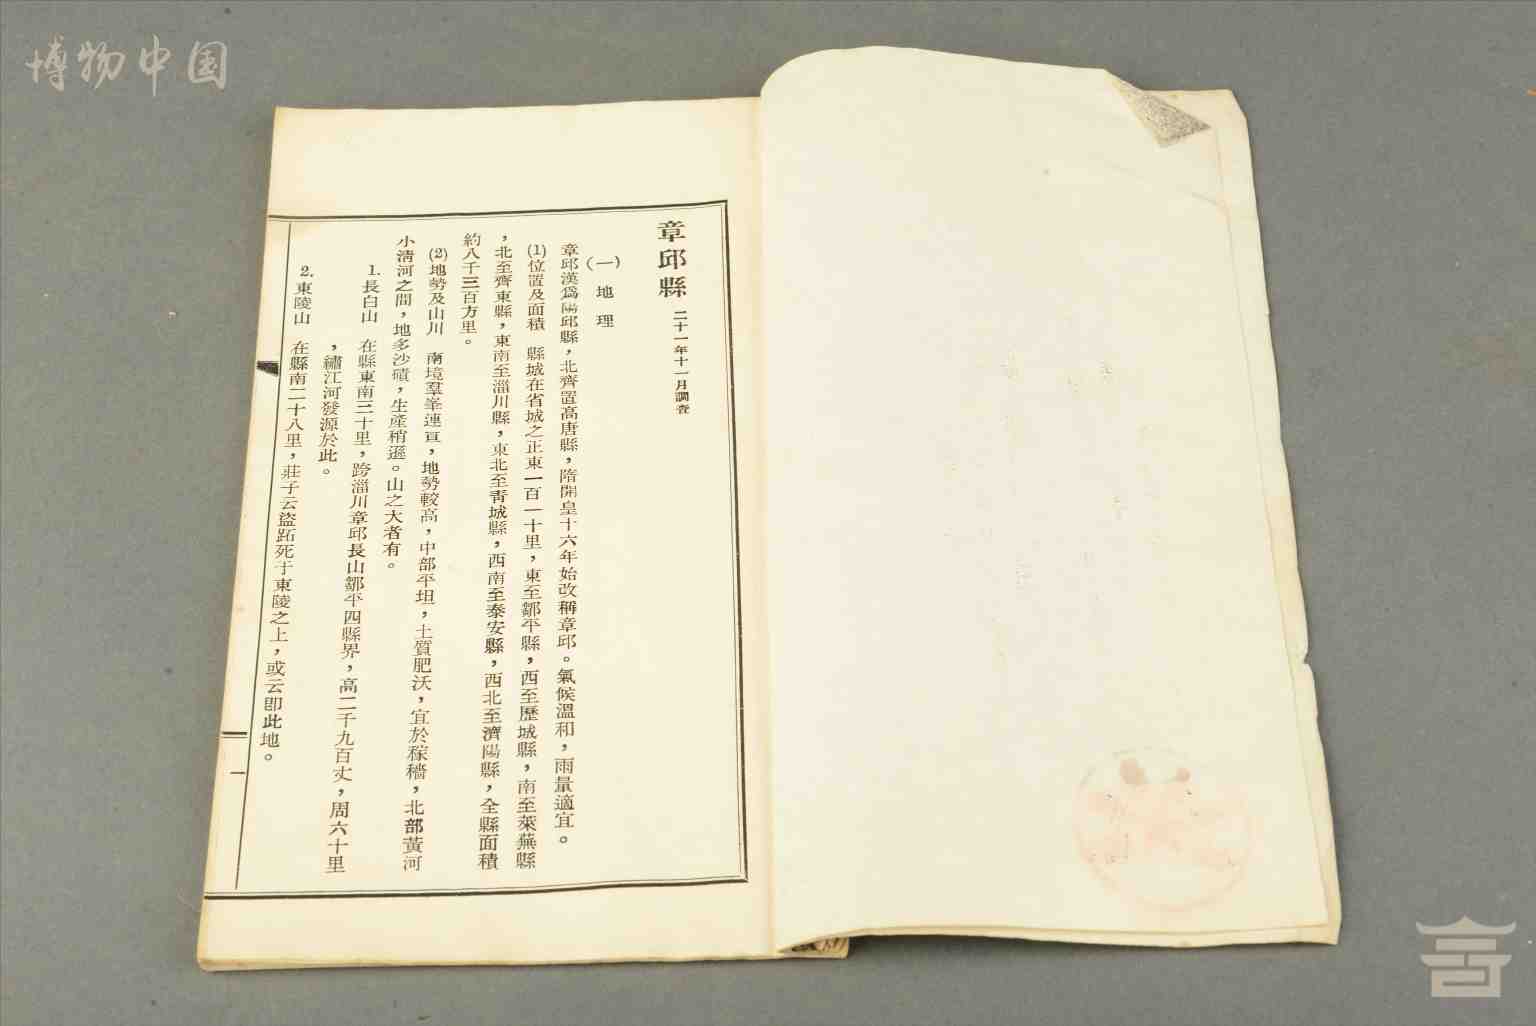 博物中国
章邱縣 二十一年十一月調查
(一) 地理
章邱漢爲陽邱縣，北齊置高唐縣，隋開皇十六年始改稱章邱。氣候溫和，雨量適宜。
(1)位置及面積 縣城在省城之正東一百一十里，東至鄒平縣，西至歷城縣，南至萊蕪縣
，北至齊東縣，東南至淄川縣，東北至青城縣，西南至泰安縣，西北至濟陽縣，全縣面積
約八千三百方里。
(2)地勢及山川 南境羣峯連亘，地勢較高，中部平坦，土質肥沃，宜於稼穡，北部黃河
小清河之間，地多沙磧，生產稍遜。山之大者有。
1.長白山 在縣東南三十里，跨淄川章邱長山鄒平四縣界，高二千九百丈，周六十里
，繡江河發源於此。
2.東陵山 在縣南二十八里，莊子云盜跖死于東陵之上，或云卽此地。
一